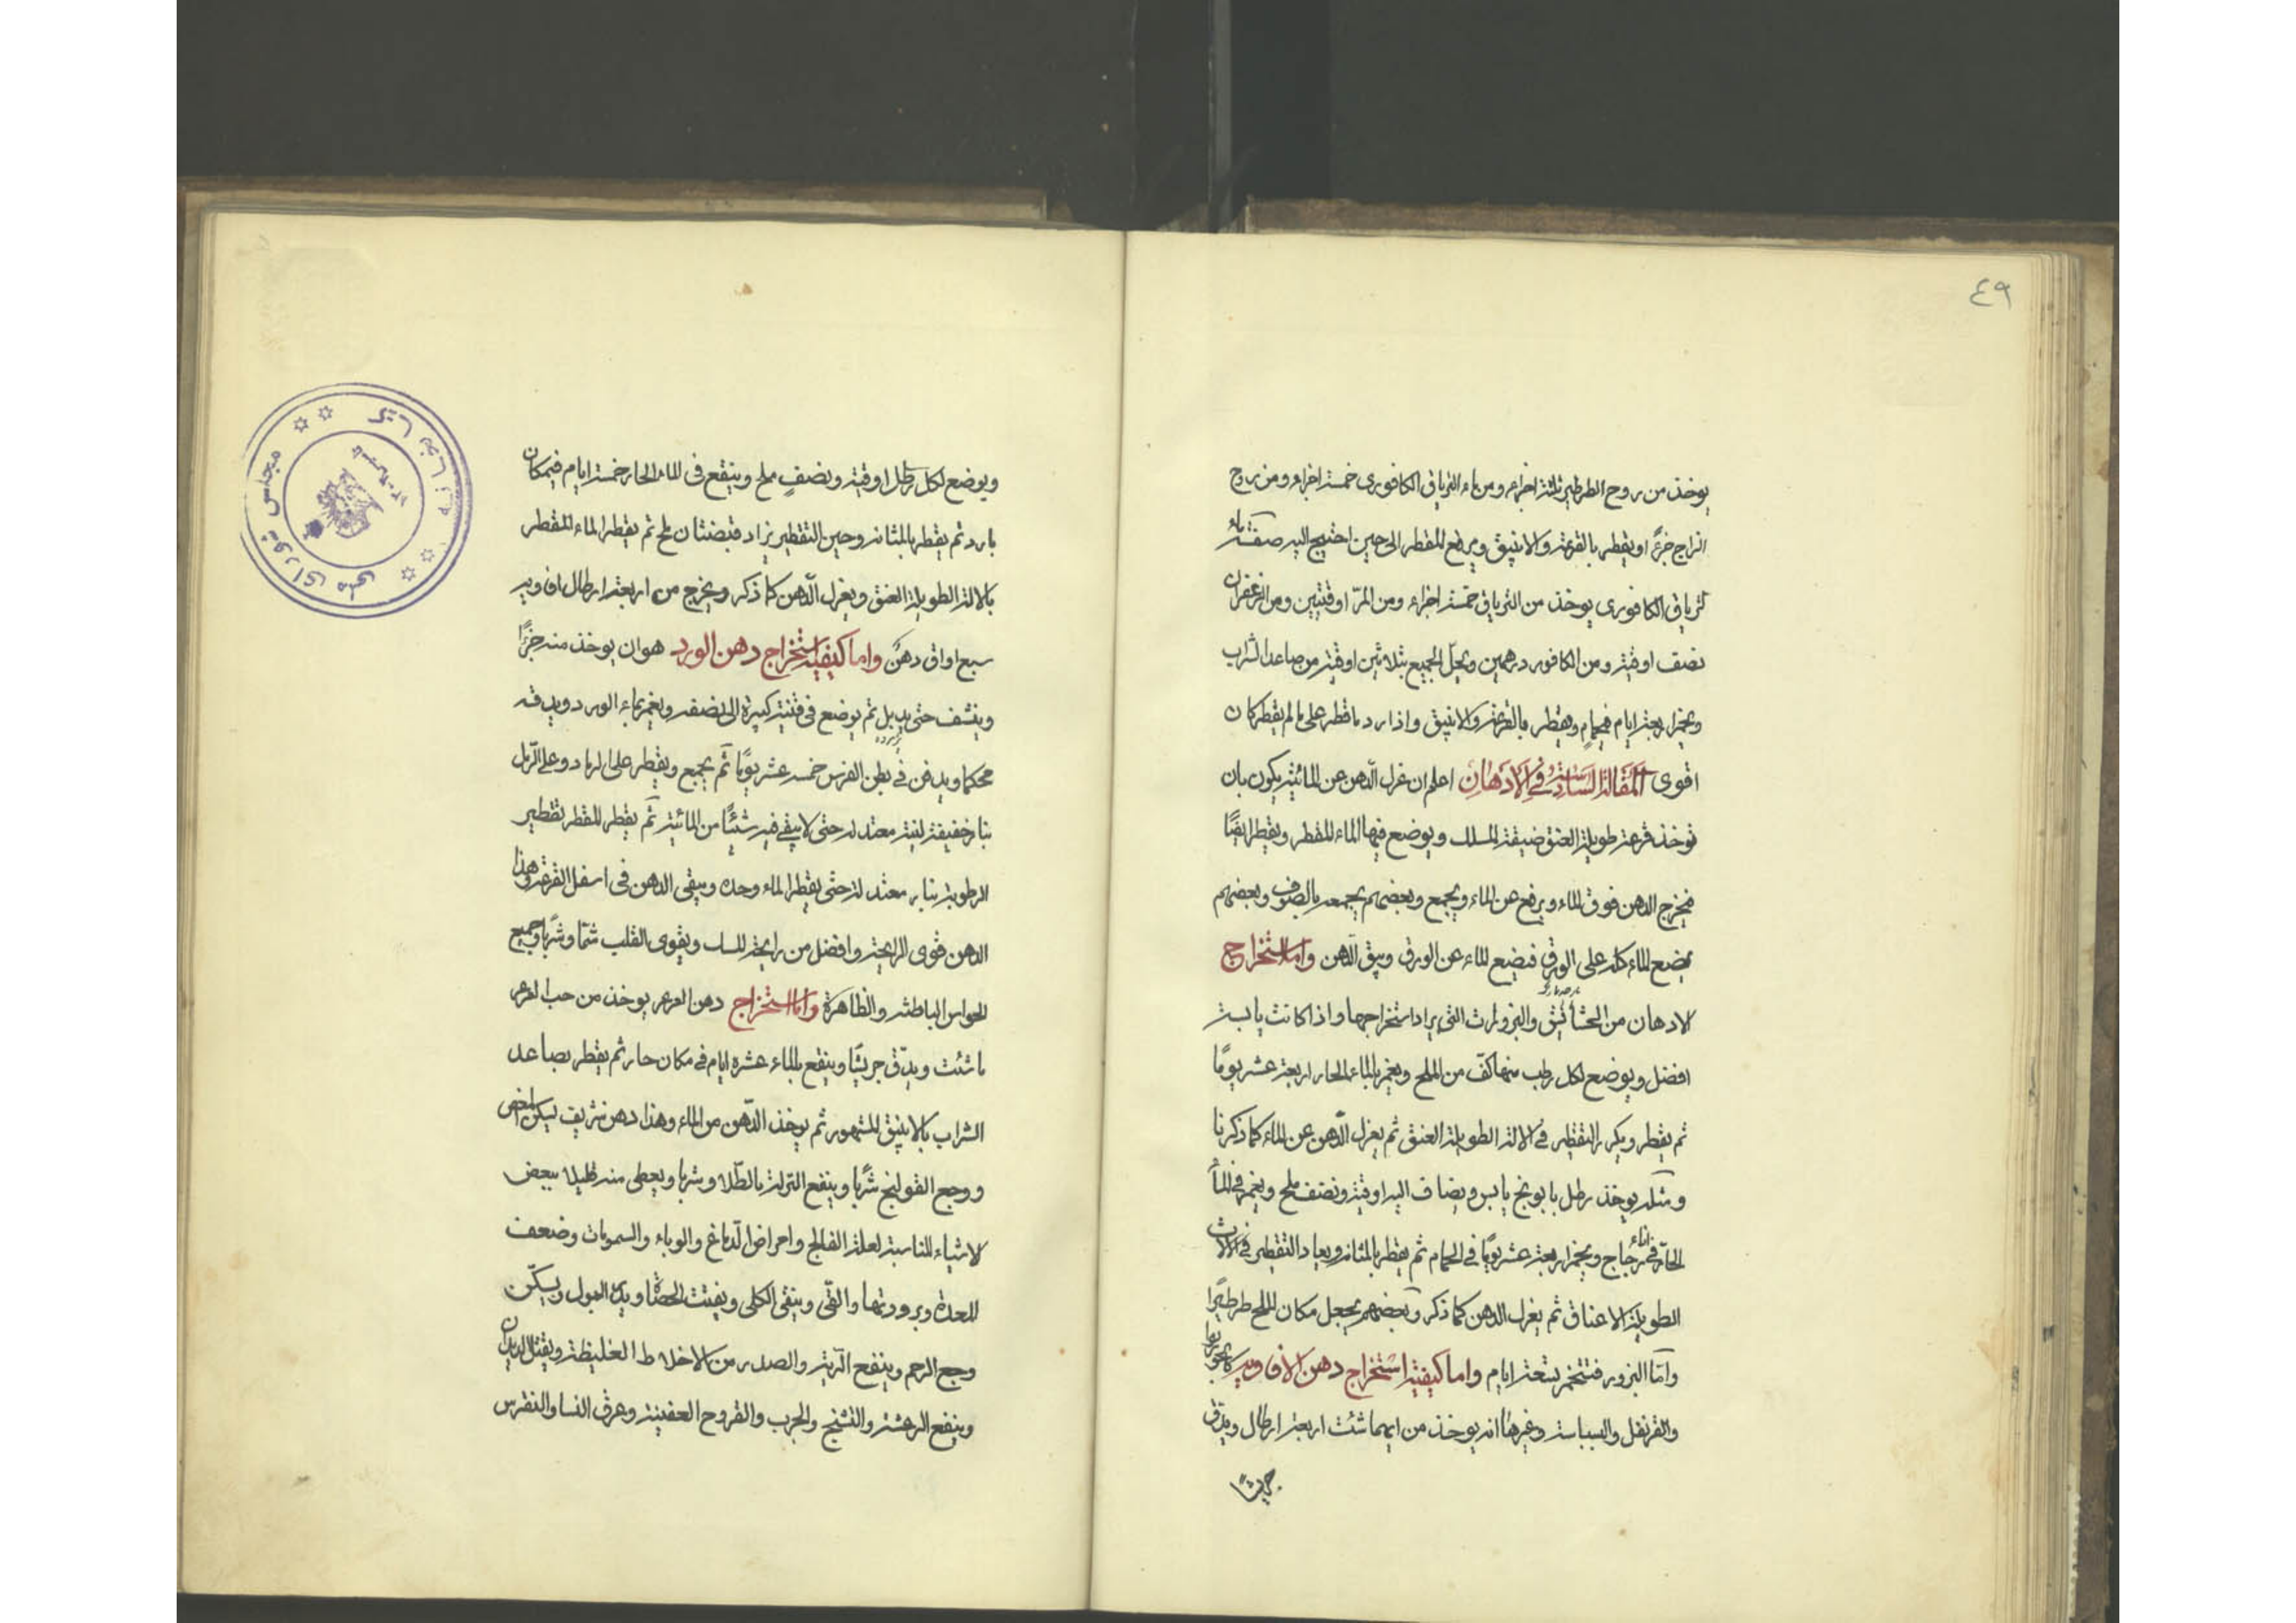 ٤٩
يوخذ من روح الطرطير ثلثة اجزاء ومن ماء الترياق الكافورى خمسة اجزاء ومن روح
الزاج جزءً او يقطر بالقرعة والانبيق ويرفع المقطر الى حين احتيج اليه صفة ماء
لترياق الكافورى يوخذ من الترياق خمسة اجزاء ومن المرّ اوقتين ومن الزعفران
نصف اوقية ومن الكافور درهمين ويحلّ الجميع بثلاثين اوقية من صاعد الشراب
ويخمر اربعة ايام فى حمام ويقطر بالقرعة والانبيق واذا رد ما قطر على ما لم يقطر كان
اقوى المقالة السادسة فى الادهان اعلم ان عزل الدهن عن المائية يكون بان
توخذ قرعة طويلة العنق ضيقة المسلك ويوضع فيها الماء المقطر ويقطر ايضًا
فيخرج الدهن فوق الماء ويرفع عن الماء ويجمع وبعضهم يجمعه بالصوف وبعضهم
يضع الماء كله على الورق فيضيع الماء عن الورق ويبقى الدهن واما استخراج
الادهان من الحشائش والبزورات التى يراد استخراجها واذا كانت يابسة
افضل ويوضع لكل رطب منها كفّ من الملح ويغمر بالماء الحار اربعة عشر يومًا
ثم يقطر ويكرر التقطير فى الالة الطويلة العنق ثم يعزل الدهن عن الماء كما ذكرنا
ومثله يوخذ رطل بابونج يابس ويضاف اليه اوقية ونصف ملح ويغمر فى الماء
الحارّ فى اناء زجاج ويخمر اربعة عشر يومًا فى الحمام ثم يقطر بالمثانة ويعاد التقطير فى الالات
الطويلة الاعناق ثم يعزل الدهن كما ذكر وبعضهم يجعل مكان الملح طرطيرًا
وامّا البزور فتتخمر بتسعة ايام واما كيفية استخراج دهن الافاويه كالجوزبوا
والقرنفل والبسباسة وغيرها انه يوخذ من ايهما شئت اربعة ارطال ويدق
جريشًا
ويوضع لكل رطل اوقية ونصف ملح وينقع فى الماء الحار خمسة ايام فى مكان
بارد ثم يقطر بالمثانة وحين التقطير يزاد قبضتان ملح ثم يقطر الماء المقطر
بالالة الطويلة العنق ويعزل الدهن كما ذكر ويخرج من اربعة ارطال افاويه
سبع اواق دهنً واما كيفية استخراج دهن الورد هو ان يوخذ منه جزءًا
وينشف حتى يذبل ثم يوضع فى قنينة كبيرة الى نصفه ويغمر بماء الورد ويدقه
محكما ويدفن فى بطن الفرس خمسة عشر يومًا ثم يجمع ويقطر على الرماد وعلى الرمل
بنار خفيفة لينة معتدلة حتى لا يبقى فيه شيئًا من المائية ثم يقطر المقطر تقطير
الرطوبة بنار معتدلة حتى يقطر الماء وحده ويبقى الدهن فى اسفل القرعة وهذا
الدهن قوى الرايحة وافضل من رايحة المسك ويقوى القلب شمّا وشربا وجميع
الحواس الباطنة والظاهرة واما استخراج دهن العرعر يوخذ من حب العرعر
ما شئت ويدقّ جريشًا وينقع بالماء عشرة ايام فى مكان حار ثم يقطر بصاعد
الشراب بالانبيق المشهور ثم يوخذ الدهن من الماء وهذا دهن شريف يسكن المغص
ووجع القولنج شربًا وينفع النزلة بالطلاء وشربا ويعطى منه قليلا ببعض
الاشياء المناسبة لعلة الفالج وامراض الدماغ والوباء والسمومات وضعف
المعدة وبرودتها والقئ وينقى الكلى ويفتت الحصاة ويدر البول ويسكّن
وجع الرحم وينفع الرية والصدر من الاخلاط الغليظة ويقتل الديدان
وينفع الرعشة والتشنج والجرب والقروح العفينة وعرق النسا والنقرس
مجلس شوراى ملى